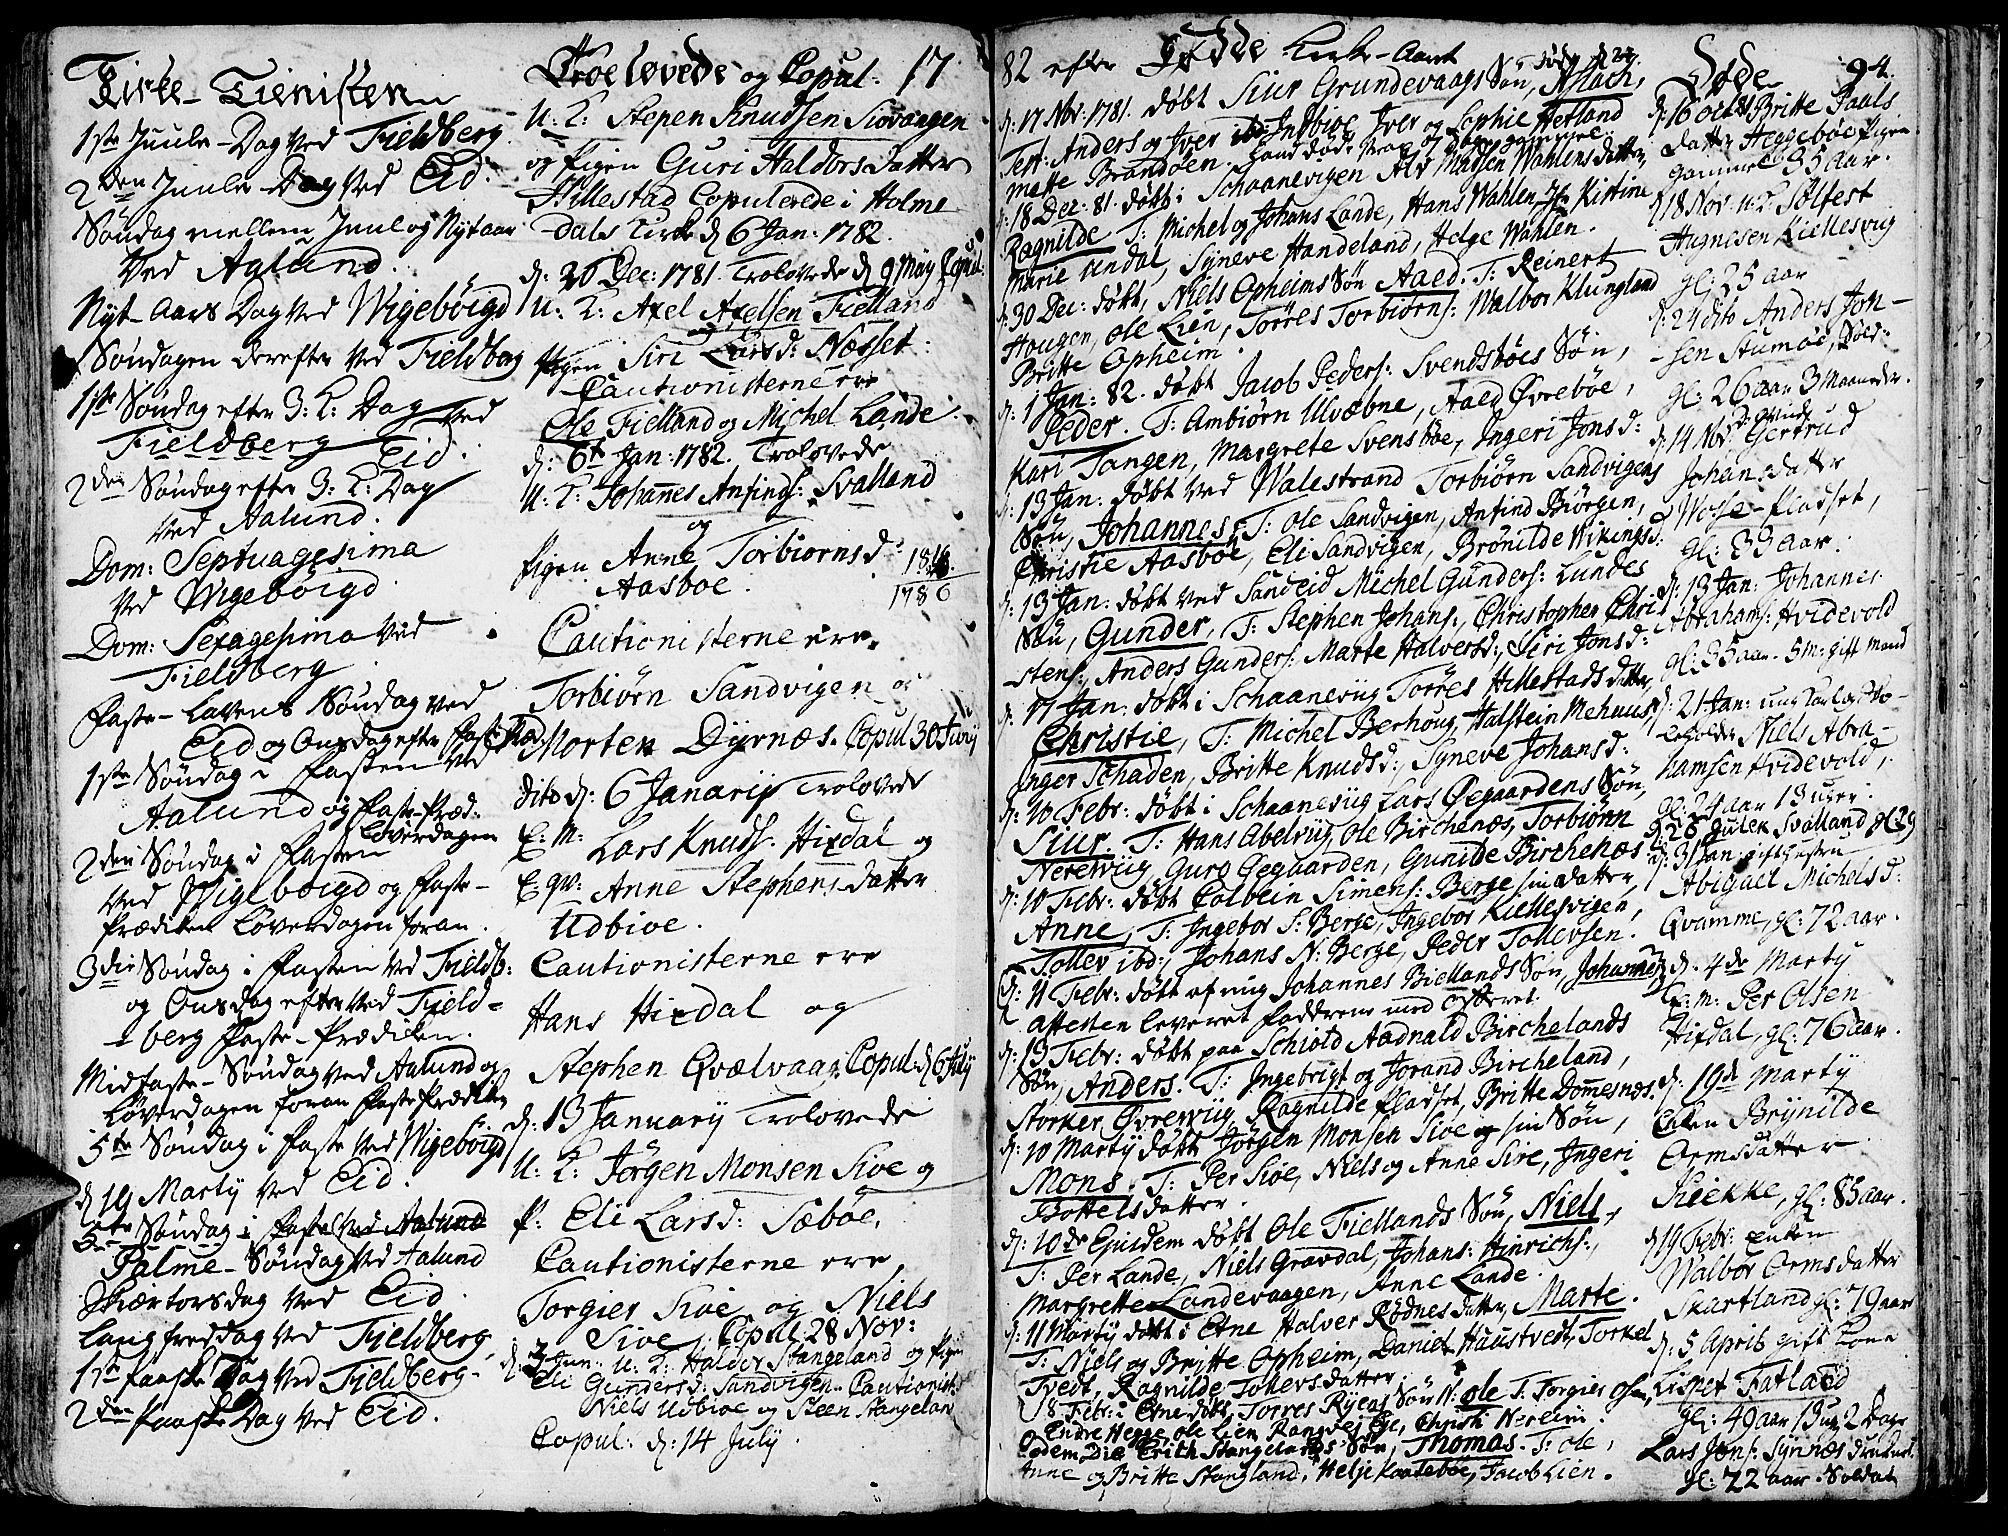 Kirke-Tienisten
1ste Juule-Dag ved Fieldberg
2den Juule-Dag ved Eid.
Søndag mellem Juul og Nytaar
ved Aalund.
Nyt-Aars Dag ved Wigebøigd
Søndagen derefter ved Fieldberg
1ste Søndag efter 3: K: Dag ved
Fieldberg
Eid.
2den Søndag efter 3: K: Dag
ved Aalund.
Dom: Septuagesima
ved Wigebøigd
Dom: Sexagesima ved
Fieldberg
Faste-Lavens Søndag ved
Eid og Onsdag efter Faste Præd.
1ste Søndag i Fasten ved
Aalund og Faste-Præd:
Løverdagen
2den Søndag i Fasten
ved Wigebøigd og Faste-
Prædiken Løverdagen foran.
3die Søndag i Fasten ved Fieldb:
og Onsdag efter ved Field-
berg Faste-Prædiken.
Midfaste-Søndag ved Aalund og
Løverdagen foran Faste Prædiken
5te Søndag i Faste ved Wigebøigd
d 19 Marty ved Eid.
Søndag i Faste ved Aalund
Palme-Søndag ved Aalund
Skiærtorsdag ved Eid.
Langfreddag ved Fieldberg,
1ste Paaske Dag ved Fieldberg.
2den Paaske Dag ved Eid.
Troelovede og Copul: 17
U: K: Stepen Knudsen Siovaagen
og Pigen Guri Haldors Datter
Hillestad Copulerede i Holme
Dals Kirke d 6 Jan: 1782.
d: 26 Dec: 1781. Trolovede d 9 May Copul:
U: K: Axel Axelsen Fielland
og
Pigen Siri Larsd: Næsset.
Cautionisterne ere
Ole Fielland og Michel Lande.
d: 6te Jan: 1782. Trolovede
U: K: Johannes Anfinds: Svalland
og
Pigen Anne Torbiørnsd:
Aasboe.
1786
Cautionisterne ere.
Torbiørn Sandvigen og
Morten Dyrnæs. Copul 30 Juny
dito d: 6 Janarij Trolovede
E: M: Lars Knuds: Hixdal og
E: qv: Anne Stephens datter
Udbioe.
Cautionisterne ere
Hans Hixdal og
Stephen Qvælvaag. Copul: d 6 July
d: 13 January Trolovede
U: K: Jørgen Monsen Sioe og
P: Eli Larsd: Sæbøe.
Cautionisterne ere
Torgier Sioe og Niels
Sioe. Copul 28 Nov:
d: 3 Jun: U: K: Haldor Stangeland og Pigen
Eli Gundersd: Sandvigen. Cautionist:
Niels Udbioe og Steen Stangeland
Copul: d: 14 July.
82 efter Fødde Kirke-Aaret
d: 17 Nov: 1781. døbt Siur Grundevaags Søn, Aslach,
Test: Anders og Iver ibd: Indbioe Iver og Sophie Hetland
Matte Brandøen.
d: 18 Dec: 81. døbt i Schaanevigen Alv Madsen Wahlens datter
Ragnilde T: Michel og Johans Lande, Hans Wahlen, Jfr Kirtine
Marie Undal, Syneve Handeland, Helge Wahlen.
d: 30 Dec: døbt, Niels Opheims Søn Aaed. T: Reinert
Hougen, Ole Lien, Torres Torbiørns: Walbor Klungland
Britte Opheim.
d: 1 Jan: 82. døbt Jacob Peders: Svendsbøes Søn,
Peder. T: Ambiørn Ulvæbne, Aaed Øvrebøe,
Kari Tangen, Margrete Svensbøe, Ingeri Jonsd:
d: 13 Jan: døbt ved Walestrand Torbiørn Sandvigens
Søn, Johannes, T: Ole Sandvigen, Anfind Biørgen,
Christie Aasboe, Eli Sandvigen, Brønilde Wikingsd:
d: 13 Jan: døbt ved Sandeid Michel Gunders: Lundes
Søn, Gunder, T: Stephen Johans:, Christopher Chri
stens:, Anders Gunders: Marte Halversd:, Siri Jonsd:
d: 17 Jan: døbt i Schaaneviig Torres Hillestads datter,
Christie, T: Michel Berhoug, Halstein Mehuus,
Inger Schaden, Britte Knudsd:, Syneve Johansd:
d: 10 Febr: døbt i Schaaneviig Lars Øegaardens Søn,
Siur. T: Hans Abelviig, Ole Birchenæs, Torbiønn
Nereviig, Guro Øegaarden, Gunilde Birchenæs
d: 10 Febr: døbt Colbein Simens: Berge sin datter,
Anne, T: Ingebor S: Berge, Ingebor Kiellesvigen,
Tollev ibd:, Johans N: Berge, Peder Tollevsen.
d: 11 Febr: døbt af mig Johannes Biellands Søn, Johannes
Attesten leveret Fadderne med Offeret.
d: 13 Febr: døbt paa Schiold Aadnald Birchelands
Søn, Anders. T: Ingebrigt og Jorand Bircheland,
Storker Øvreviig, Ragnilde Pladset, Britte Dommesnæs.
d: 10 Marty døbt Jørgen Monsen Sioe sin Søn,
Mons. T: Per Sioe, Niels og Anne Sioe, Ingeri
Bottelsdatter.
d: 10de Ejusdem døbt Ole Fiellands Søn, Niels,
T: Per Lande, Niels Gravdal, Johans: Hinrichs:,
Margrette Landevaagen, Anne Lande.
d: 11 Marty døbt i Etne Halver Rødnes datter, Marte.
T: Niels og Britte Opheim, Daniel Haustvedt, Torkel
Tvedt, Ragnilde Tollevsdatter.
18 Febr: i Etne døbt, Torres Ryens Søn, Ole T: Torgier
Endre Hegge, Ole Lien, Christi Nereim.
Eodem Die Erith Stangelands Søn, Thomas. T: Ole,
Anne og Britte Stangland, Helje Kaatebøe, Jacob Lien.
Døde 94.
d: 16 Oct: 81 Britte Pauls
datter Heggebøe Pigen
gammel 35 Aar.
d 18 Nov: U: K: Sølfest
Hugnesen Kiellesvig
gl: 25 aar
d: 24 dito Anders Jon-
sen Aumøe, Sold:
gl: 26 aar 3 Maaneder.
d: 14 Nov: Gertrud
Johans datter
Wosse-Pladset,
gl: 33 aar.
d: 13 Jan: Johannes
Abrahams: Hvidevold
gl: 35 aar. 5 M: gift Mand
d: 21 Jan: ung Karl
Niels Abra-
hamsen Hvidevold,
gl: 24 aar 13 uger.
Svalland gl: 29
d: 31 Jan:
Abigael Michelsd:
Qvamme, gl: 72 aar.
d: 4de Marty
E: M: Per Olsen
Hixdal, gl: 76 aar.
d: 19de Marty
Enken Brynilde
Ormsdatter
Kiekke, gl: 85 aar.
d 19 Febr: Enken
Walbor Ormsdatter
Skartland gl: 79 aar
d: 5 April: gift Kone
Lisbet Fatland
gl: 49 aar 13 ug: 2 Dage
Lars Jons: Synnæs
gl: 22 aar. Soldat